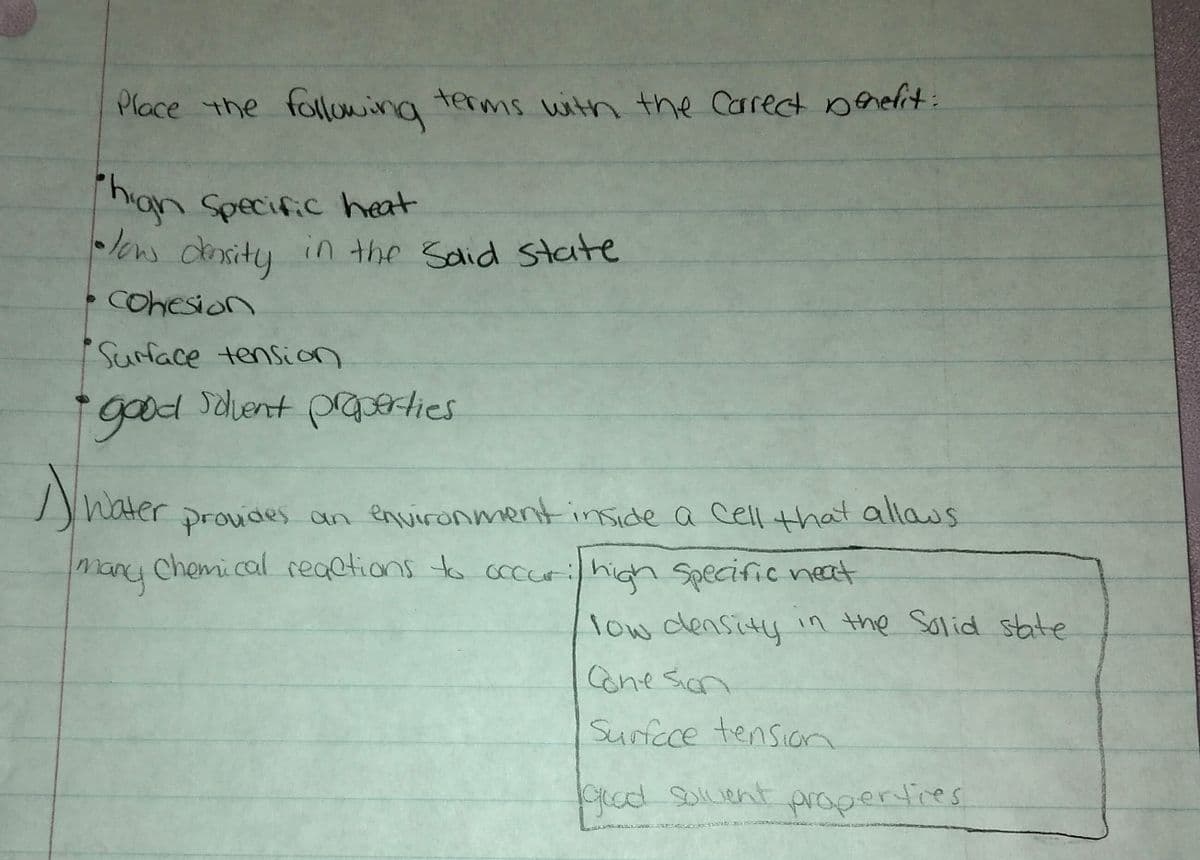 Place the following terms with the Correct benefit:
• high Specific heat
• low density in the Solid state
• cohesion
• Surface tension
• good Solvent properties
1) Water provides an environment inside a cell that allows
many Chemical reactions to occur: high Specific heat
low density in the Solid state
Cohesion
Surface tension
good solvent properties